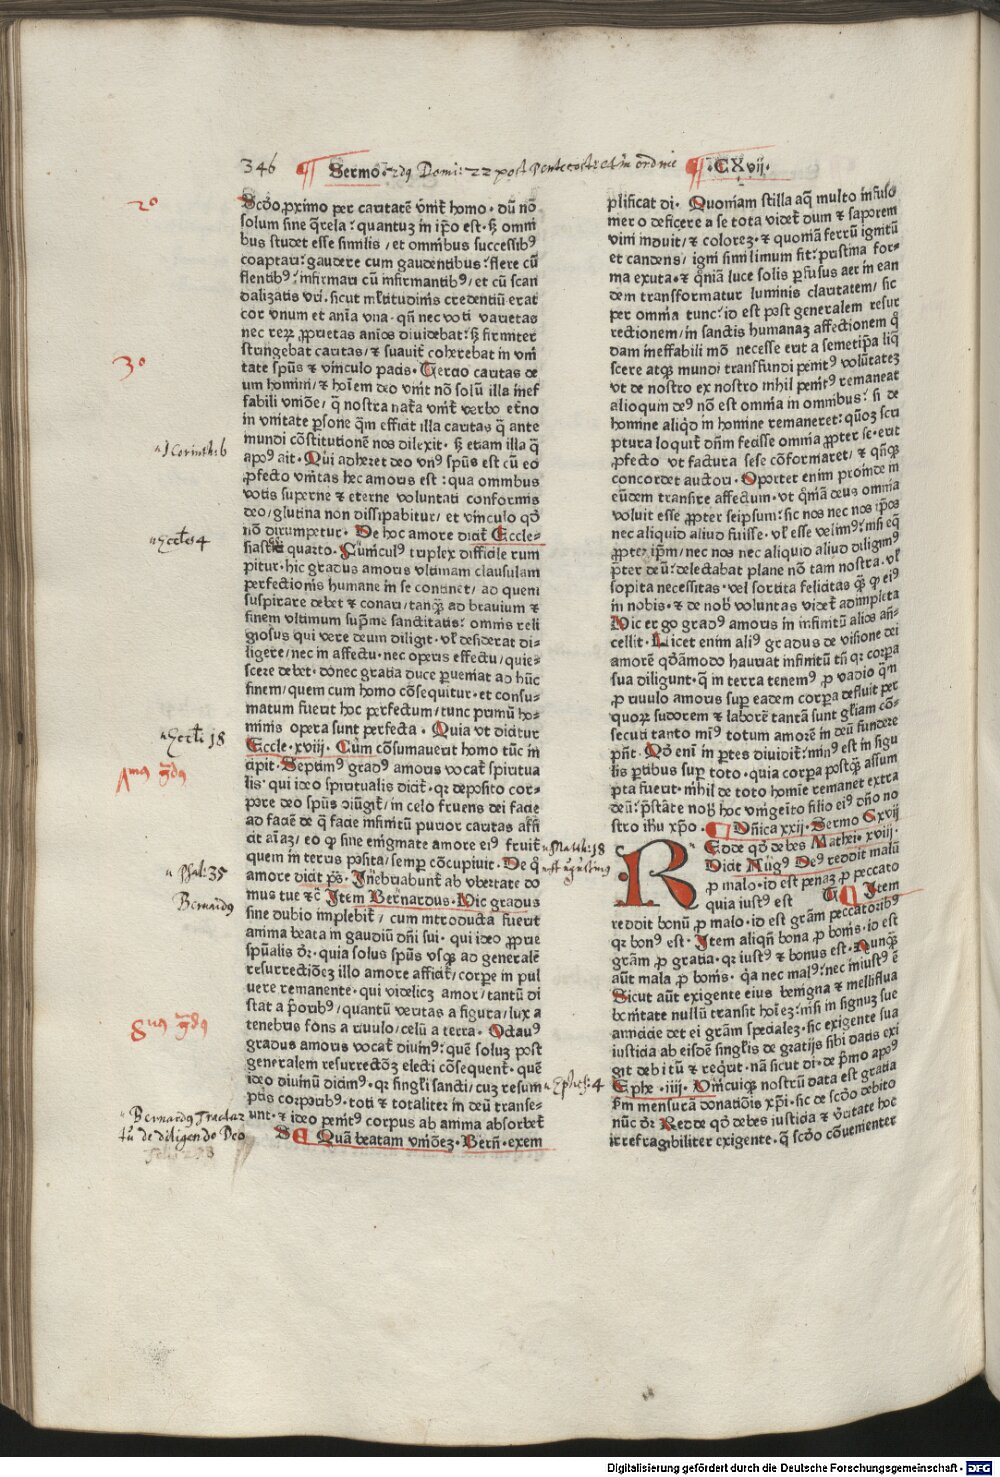 346 ¶ Sermo · 2dus Domi: 22 post Pentecost: et in ordine ¶ · CXvij ·
2º
Scd̄o, proximo per caritatē vnit᷑ homo · dū nō
solum sine q̄rela / quantuz in ip̄o est · sꝫ omni
bus studet esse similis / et omnibus successibꝰ
coaptari / gaudere cum gaudentibus / flere cū
flentibꝰ / infirmari cū infirmantibꝰ / et cū scan
dalizatis vri · sicut ml̄titudinis credentiū erat
cor vnum et anīa vna · qn̄ nec voti varietas
nec reꝝ ꝓprietas anīos diuidebat / sꝫ firmiter
stringebat caritas / ⁊ suauit᷑ coherebat in vni
3º
tate spūs ⁊ vinculo pacis · Tercio caritas de
um homini / ⁊ hoīem deo vnit nō solū illa inef
fabili vniōe / q̄ nostra nat̄a vnit᷑ verbo et̄no
in vnitate ꝑsone qm̄ efficit illa caritas q̄ ante
mundi cōstitutionē nos dilexit · sꝫ etiam illa q̄
I Corinth: 6
apoꝰ ait · Qui adheret deo vnꝰ spūs est cū eo
ꝓfecto vnitas hec amoris est / qua omnibus
votis superne ⁊ eterne voluntati conformis
deo / glutina non dissipabitur / et vinculo qd̄
nō dirumpetur · De hoc amore dicit᷑ Eccle=
Eccl̄es 4
siastes quarto · Funiculꝰ triplex difficile rum
pitur · hic gradus amoris vltimam clausulam
perfectionis humane in se continet / ad quem
suspirare debet ⁊ conari / tanq̄ꝫ ad brauium ⁊
finem vltimum sup̄me sanctitatis / omnis reli
giosus qui vere deum diligit · vl̄ desiderat di=
ligere / nec in affectu · nec operis effectu / quie=
scere debet · donec gratia duce perueniat ad hūc
finem / quem cum homo cōsequitur · et consu=
matum fuerit hoc perfectum / tunc primū ho=
minis opera sunt perfecta · Quia vt dicitur
Eccl̄i 18
Eccle · xviij · Cum cōsumauerit homo tūc in
7mus gradus
cipit · Septimꝰ gradꝰ amoris vocat᷑ spiritua
lis / qui ideo spiritualis dicit᷑ · qꝛ deposito cor=
pore deo spūs ciūgit᷑ / in celo fruens dei facie
ad faciē de q̄ facie infinitū purior caritas affi
cit aīaꝫ / eo ꝙ sine enigmate amore eiꝰ fruit᷑
quem in terris posita / semper cōcupiuit · De q̄
Psal: 35
amore dicit ps̄ · Inebriabunt᷑ ab vbertate do
Bernardꝰ
mus tue ⁊c̄ Item Bernardus · Hic gradus
sine dubio implebit᷑ / cum introducta fuerit
anima beata in gaudiū dn̄i sui · qui ideo ꝓprie
spūalis dr̄ · quia solus spūs vsqꝫ ad generalē
resurrectiōeꝫ illo amore afficit᷑ / corpore in pul
uere remanente · qui videlicꝫ amor / tantū di
stat a p̄oribꝰ / quantū veritas a figura / lux a
8uus gradus
tenebris fons a riuulo / celū a terra · Octauꝰ
gradus amoris vocat᷑ diuinꝰ / quē soluꝫ post
generalem resurrectōꝫ electi cōsequent᷑ · quē
ideo diuinū dicimꝰ · qꝛ singl̄i sancti / cuꝫ resum
Bernardꝰ Tractatu de diligendo Deo
ptis corporibꝰ · toti ⁊ totaliter in deū transe=
unt · ⁊ ideo penitꝰ corpus ab anima absorbet᷑
¶ Quā beatam vniōeꝫ · Bern̄ · exem
plificat di · Quoniam stilla aq̄ multo infuso
mero deficere a se tota videt᷑ dum ⁊ saporem
vini induit / ⁊ coloreꝫ · ⁊ quoniā ferrū ignitū
et candens / igni simillimum fit / pristina for=
ma exuta · ⁊ qm̄iā luce solis ꝑfusus aer in ean
dem transformatur luminis claritatem / sic
per omnia tunc / id est post generalem resur
rectionem / in sanctis humanaꝫ affectionem q̄
dam ineffabili mō necesse erit a semetip̄a liq̄
scere atqꝫ mundi transfundi penitꝰ volūtateꝫ
vt de nostro ex nostro nihil penitꝰ remaneat
alioquin deꝰ nō est omnia in omnibus / si de
homine aliqd in homine remaneret / qn̄oꝫ scri
ptura loquit᷑ dn̄m fecisse omnia ꝓpter se · erit
ꝓfecto vt factura sese cōformaret / ⁊ qn̄qꝫ
concordet auctori · Oportet enim proinde in
eūdem transire affectum · vt qm̄iā deus omnia
voluit esse ꝓpter seipsum / sic nos nec nos ip̄os
nec aliquid aliud fuisse · vl̄ esse velimꝰ / nisi eq̄
ꝓpter ip̄m / nec nos nec aliquid aliud diligimꝰ
ꝓpter deū / delectabat plane nō tam nostra · vl̄
sopita necessitas · vel sortita felicitas q̄ꝫ ꝙ eiꝰ
in nobis · ⁊ de nob̄ voluntas videt᷑ adimpleta
Hic ergo gradꝰ amoris in infinitū alios añ=
cellit · Licet enim aliꝰ gradus de visione dei
amorē qd̄āmodo hauriat infinitū tn̄ qꝛ corpa
sua diligunt · q̄ in terra tenemꝰ ꝓ vadio qm̄
ꝓ riuulo amoris suꝑ eadem corpora defluit per
quoꝝ sudorem ⁊ laborē tantā sunt gl̄iam cō=
secuti tanto minꝰ totum amorē in deū fundere
pn̄t · Qd̄ eni in ꝑtes diuidit᷑ / minꝰ est in singu
lis ꝑtibus suꝑ toto · quia corpora postq̄ꝫ assum
pta fuerit · nihil de toto homīe remanet extra
deū / p̄stāte nob̄ hoc vnigeito filio eiꝰ dn̄o no
stro ihū xp̄o · ¶ Dn̄ica xxij · Sermo Cxvij
Math: 18
REdde qd̄ debes Mathei · xviij ·
st Augustinꝰ
Dicit Augꝰ Deꝰ reddit malū
ꝓ malo · id est penaꝫ ꝓ peccato
quia iustꝰ est ¶ Item
reddit bonū ꝓ malo · id est grām peccatoribꝰ
qꝛ bonꝰ est · Item aliqn̄ bona ꝓ bonis · id est
grām ꝓ gratia · qꝛ iustꝰ ⁊ bonus est · Nunq̄ꝫ
aūt mala ꝓ bonis · qa nec malꝰ / nec iniustꝰ ē
Sicut aūt exigente eius benigna ⁊ melliflua
bonitate nullū transit hoīeꝫ / nisi in signuꝫ sue
amicicie det ei grām specialeꝫ · sic exigente sua
iusticia ab eisdē singl̄is de gratijs sibi datis exi
git debitū ⁊ reqrit · nā sicut di · de p̄mo apoꝰ
Ephes: 4
Ephe · iiij · Vnicuiqꝫ nostrū data est gratia
ẜm mensurā donatiōis xp̄i · sic de scd̄o debito
nūc dr̄ Redde qd̄ debes iusticia ⁊ vritate hoc
irrefragibiliter exigente · q̄ scd̄o cōuenienter
Digitalisierung gefördert durch die Deutsche Forschungsgemeinschaft - DFG